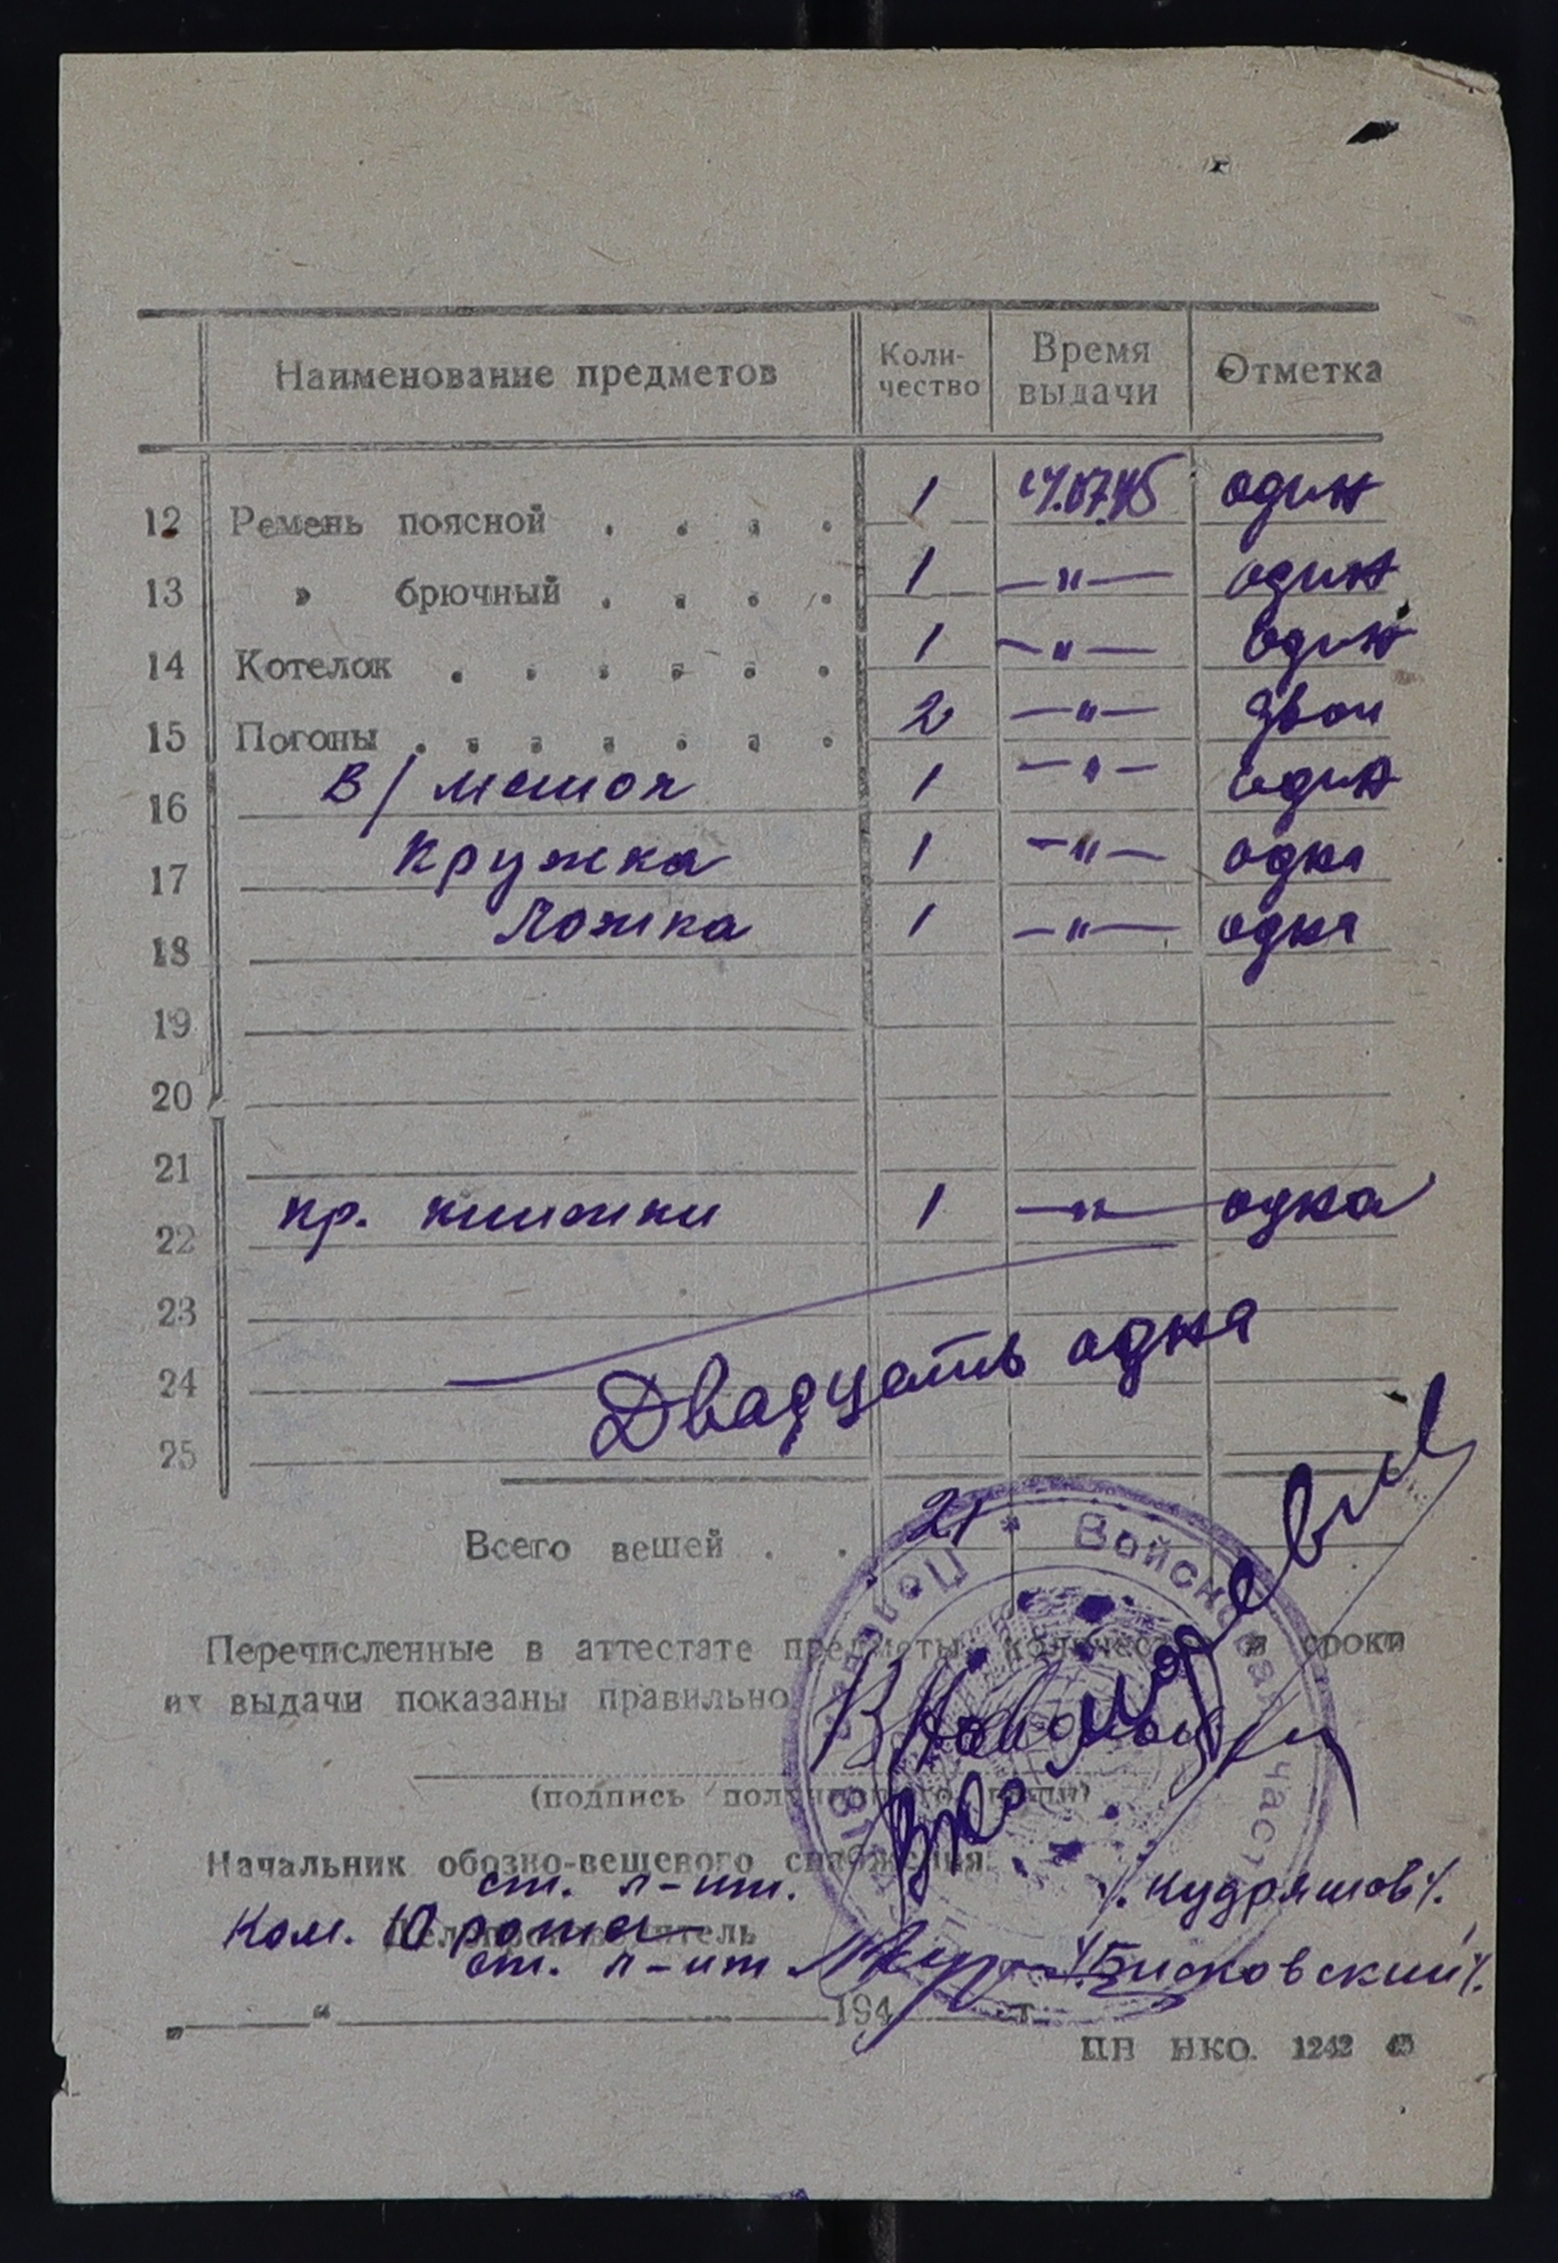 Наименование предметов Количество Время выдачи Отметка
12 Ремень поясной . . . . 1 17.07.45 один
13 » брючный . . . . 1 —"— один
14 Котелок . . . . . . 1 —"— один
15 Погоны . . . . . . . 2 —"— двои
16 В/мешок 1 —"— один
17 Кружка 1 —"— одна
18 Ложка 1 —"— одна
19
20
21
22 кр. книжки 1 —"— одна
23
24 Двадцать одна
25
Всего вещей . . 21
Войсковая часть Полевая
Перечисленные в аттестате предметы, количество и сроки
их выдачи показаны правильно
(подпись получившего вещи)
Начальник обозно-вещевого снабжения
ст. л-нт. /Кудряшов/.
Ком. 10 роты Делопроизводитель
ст. л-нт /Бисковский/.
„ “ 194 г.
ЦП НКО. 1242 45